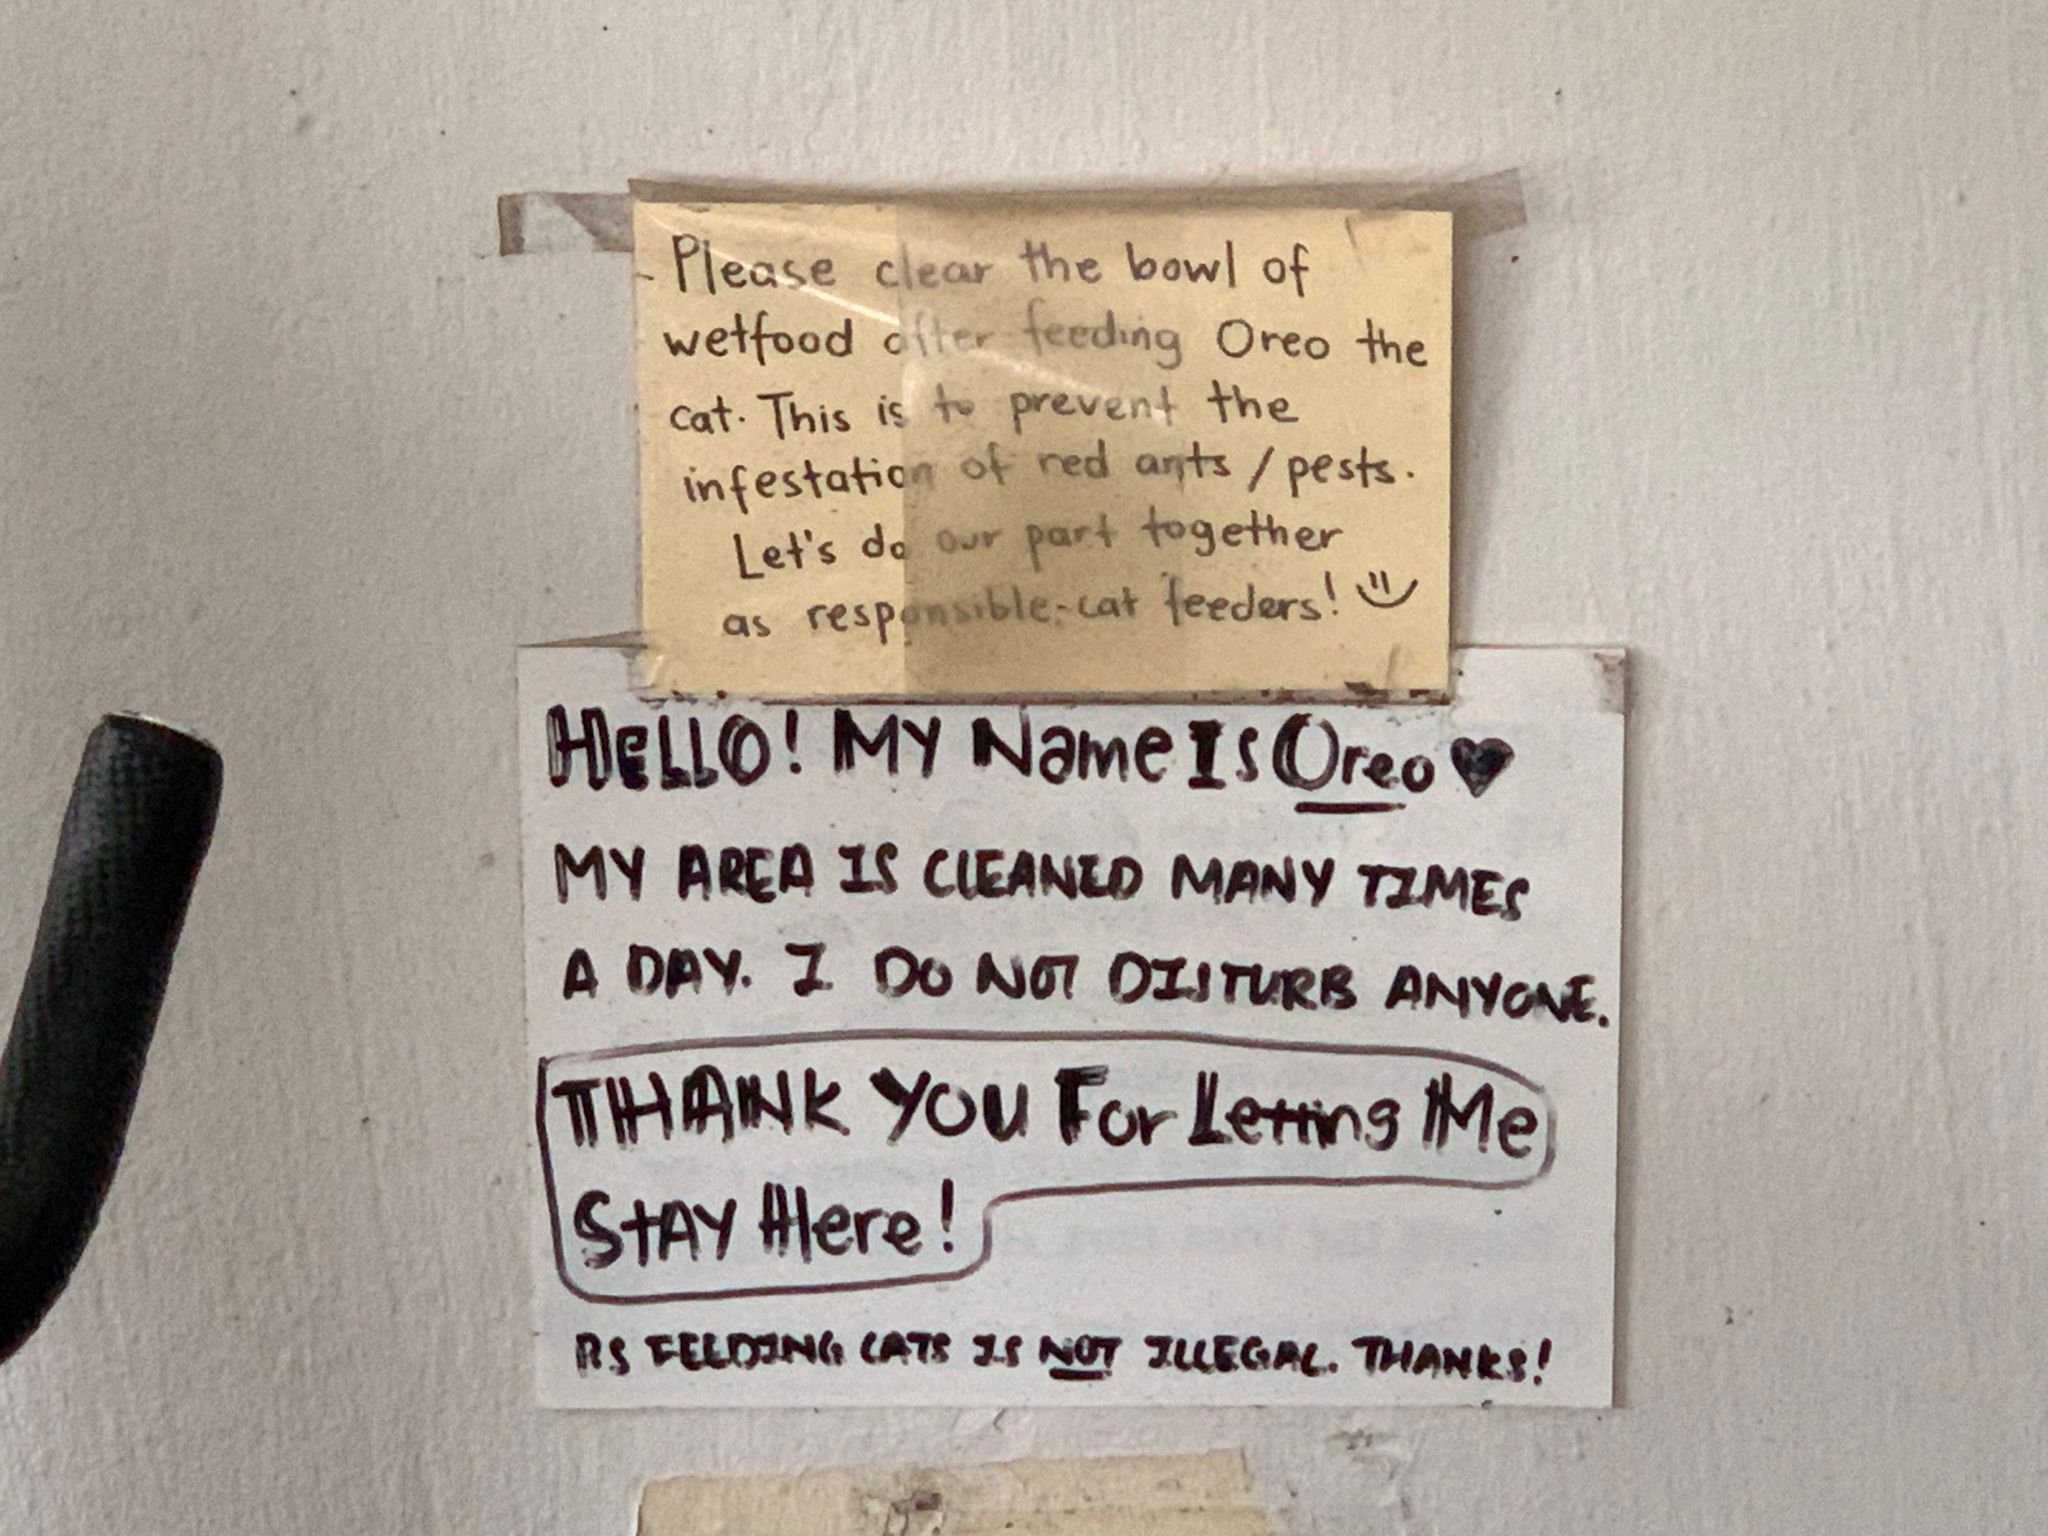 Please clear the bowl of
wetfood after feeding Oreo the
cat. This is to prevent the
infestation of red ants / pests.
Let's do our part together
as responsible-cat feeders!
HELLO! MY Name Is Oreo
MY AREA IS CLEANED MANY TIMES
A DAY. I DO NOT DISTURB ANYONE.
THANK YOU For Letting Me
STAY Here!
PS FEEDING CATS IS NOT ILLEGAL. THANKS!